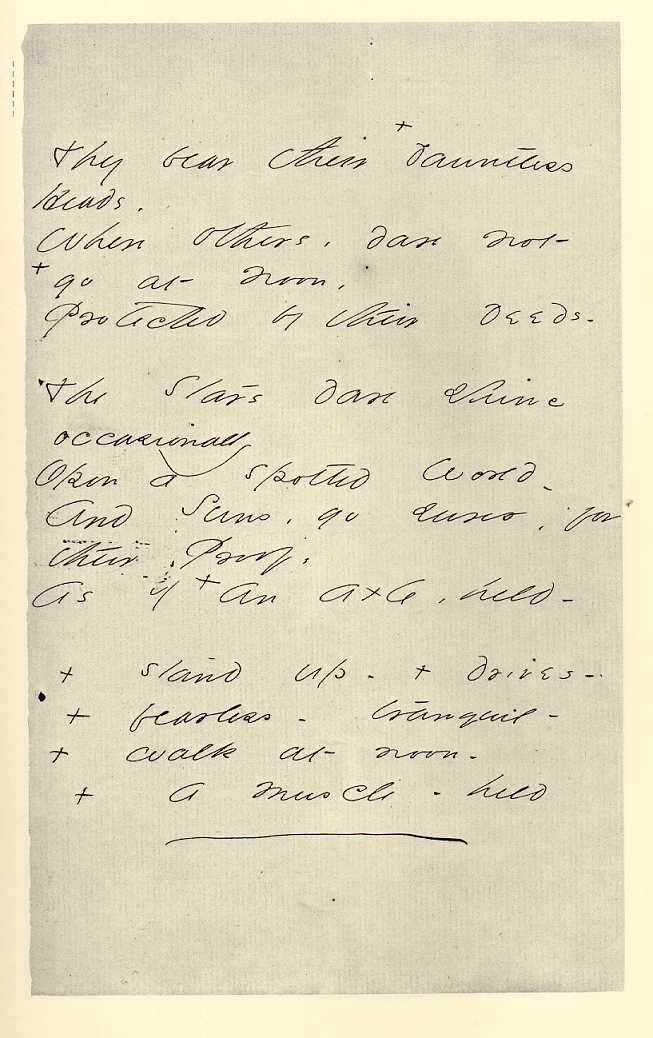 They bear their + Dauntless
Heads.
When others, dare not -
+ go at - noon,
Protected by their deeds -
The Stars dare shine
occasionally
Upon a spotted World -
And Suns, go surer, for
their Proof,
As if + an axle, held -
+ stand up - + drives -
+ fearless - tranquil -
+ walk at - noon -
+ a muscle - held